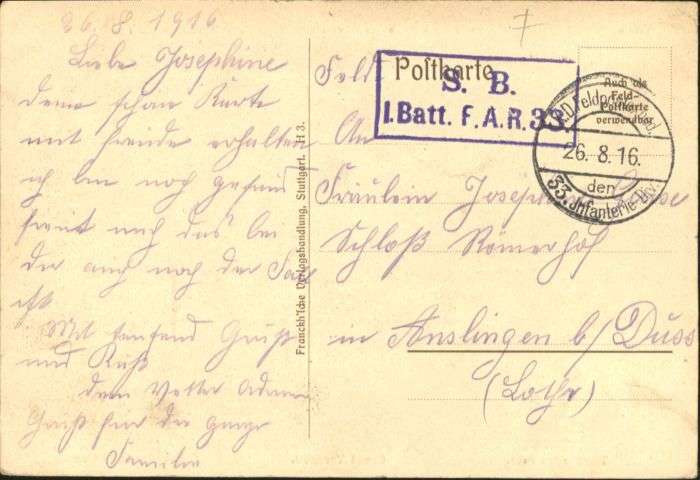 26.8.1916
Liebe Josephine
deine schöne Karte
mit freude erhalten
ich bin noch gesund
freut mich das bei
dir auch noch der Fall
ist.
Mit tausend Grüß
und Kuß
dein Vetter
Gruß für die ganze
Familie
Franckh'sche Verlagshandlung, Stuttgart. H 3.
Feld Postkarte
S. B.
I. Batt. F. A. R. 33.
Auch als
Feld-
Postkarte
verwendbar
26.8.16.
den
33. Infanterie-Div.
An
Fräulein
Schloß Römerhof
in Anslingen b/ Duss
(Lothr)